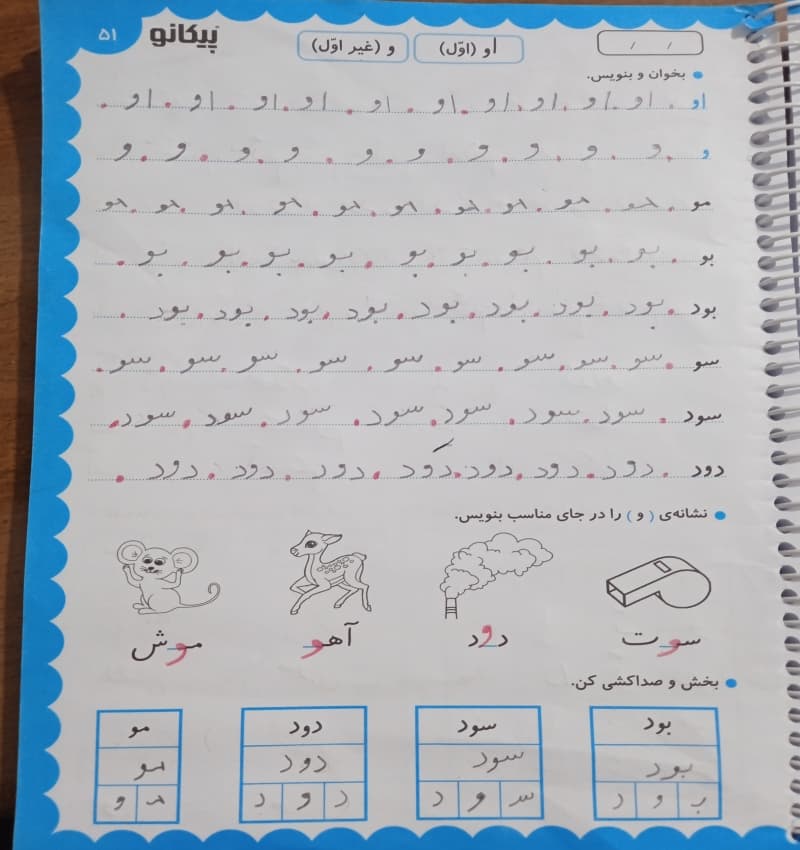 ۵۱ پیکانو و (غیر اوّل) او (اوّل) / /
بخوان و بنویس.
او . او . او . او . او . او . او . او . او . او . او .
و . و . و . و . و . و . و . و . و . و . و
مو . مو . مو . مو . مو . مو . مو . مو . مو . مو . مو
بو . بو . بو . بو . بو . بو . بو . بو . بو . بو .
بود . بود . بود . بود . بود . بود . بود . بود . بود .
سو . سو . سو . سو . سو . سو . سو . سو . سو . سو .
سود . سود . سود . سود . سود . سود . سود . سود .
دود . دود . دود . دود . دود . دود . دود . دود .
نشانه‌ی ( و ) را در جای مناسب بنویس.
سوت دود آهو موش
بخش و صداکشی کن.
بود سود دود مو
بود سود دود مو
بـ و د سـ و د د و د مـ و